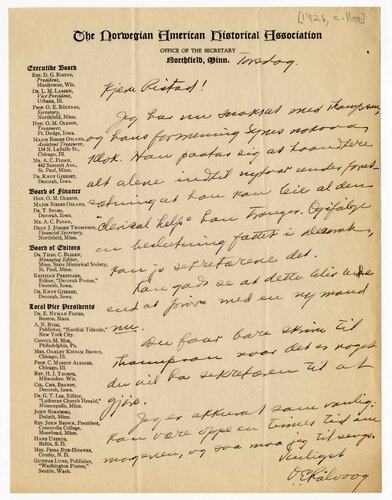 [1926, c. Nov.]
The Norwegian American Historical Association
OFFICE OF THE SECRETARY
Northfield, Minn.
Torsdag
Executive Board
REV. D. G. RISTAD,
President,
Manitowoc, Wis.
DR. L. M. LARSON,
Vice President,
Urbana, Ill.
PROF. O. E. RÖLVAAG,
Secretary,
Northfield, Minn.
HON. O. M. OLESON,
Treasurer,
Ft. Dodge, Iowa.
MAJOR BIRGER OSLAND,
Assistant Treasurer,
134 N. LaSalle St.,
Chicago, Ill.
MR. A. C. FLOAN,
442 Summit Ave.,
St. Paul, Minn.
DR. KNUT GJERSET,
Decorah, Iowa.
Board of Finance
HON. O. M. OLESON,
MAJOR BIRGER OSLAND,
DR. T. STABO,
Decorah, Iowa.
MR. A. C. FLOAN,
DEAN J. JORGEN THOMPSON,
Financial Secretary,
Northfield, Minn.
Board of Editors
DR. THEO. C. BLEGEN,
Managing Editor,
Minn. State Historical Society,
St. Paul, Minn.
KRISTIAN PRESTGARD,
Editor, "Decorah Posten,"
Decorah, Iowa.
DR. KNUT GJERSET,
Decorah, Iowa.
Local Vice Presidents
DR. E. NYMAN FIGVED,
Boston, Mass.
A. N. RYGG,
Publisher, "Nordisk Tidende,"
New York City.
CONSUL M. MOE,
Philadelphia, Pa.
MRS. OAKLEY KISSAM BROWN,
Chicago, Ill.
PROF. C. MARTIN ALSAGER,
Chicago, Ill.
REV. H. J. THORPE,
Milwaukee, Wis.
CH. CHR. BRANDT,
Decorah, Iowa.
DR. G. T. LEE, Editor,
"Lutheran Church Herald,"
Minneapolis, Minn.
JOHN NORNBORG,
Duluth, Minn.
REV. JOHN BROWN, President,
Concordia College,
Moorhead, Minn.
HANS USTRUD,
Baltic, S. D.
MRS. FRIDA BUE-HOMNES,
Crosby, N. D.
GUNNAR LUND, Publisher,
"Washington Posten,"
Seattle, Wash.
Kjære Ristad!
Jeg har nu snakket med Thompson,
og hans formening synes nokså
klok. Han påtar sig at haandtere
alt alene indtil nytaar under forut-
sætning at han kan leie al den
"clerical help" han trænger. Ogifølge
en beslutning fattet i Decorah,
kan jo sekretæren det.
Kan gads se at dette blir bedre
end at prøve med en ny mand
nu.
Du faar bare skrive til
Thompson naar det er noget
du vil ha sekretæren til at
gjøre.
Jeg er akkurat som vanlig:
kan være oppe en times tid om
morgenen, og saa maa jeg til sengs.
Venligst
O E Rölvaag